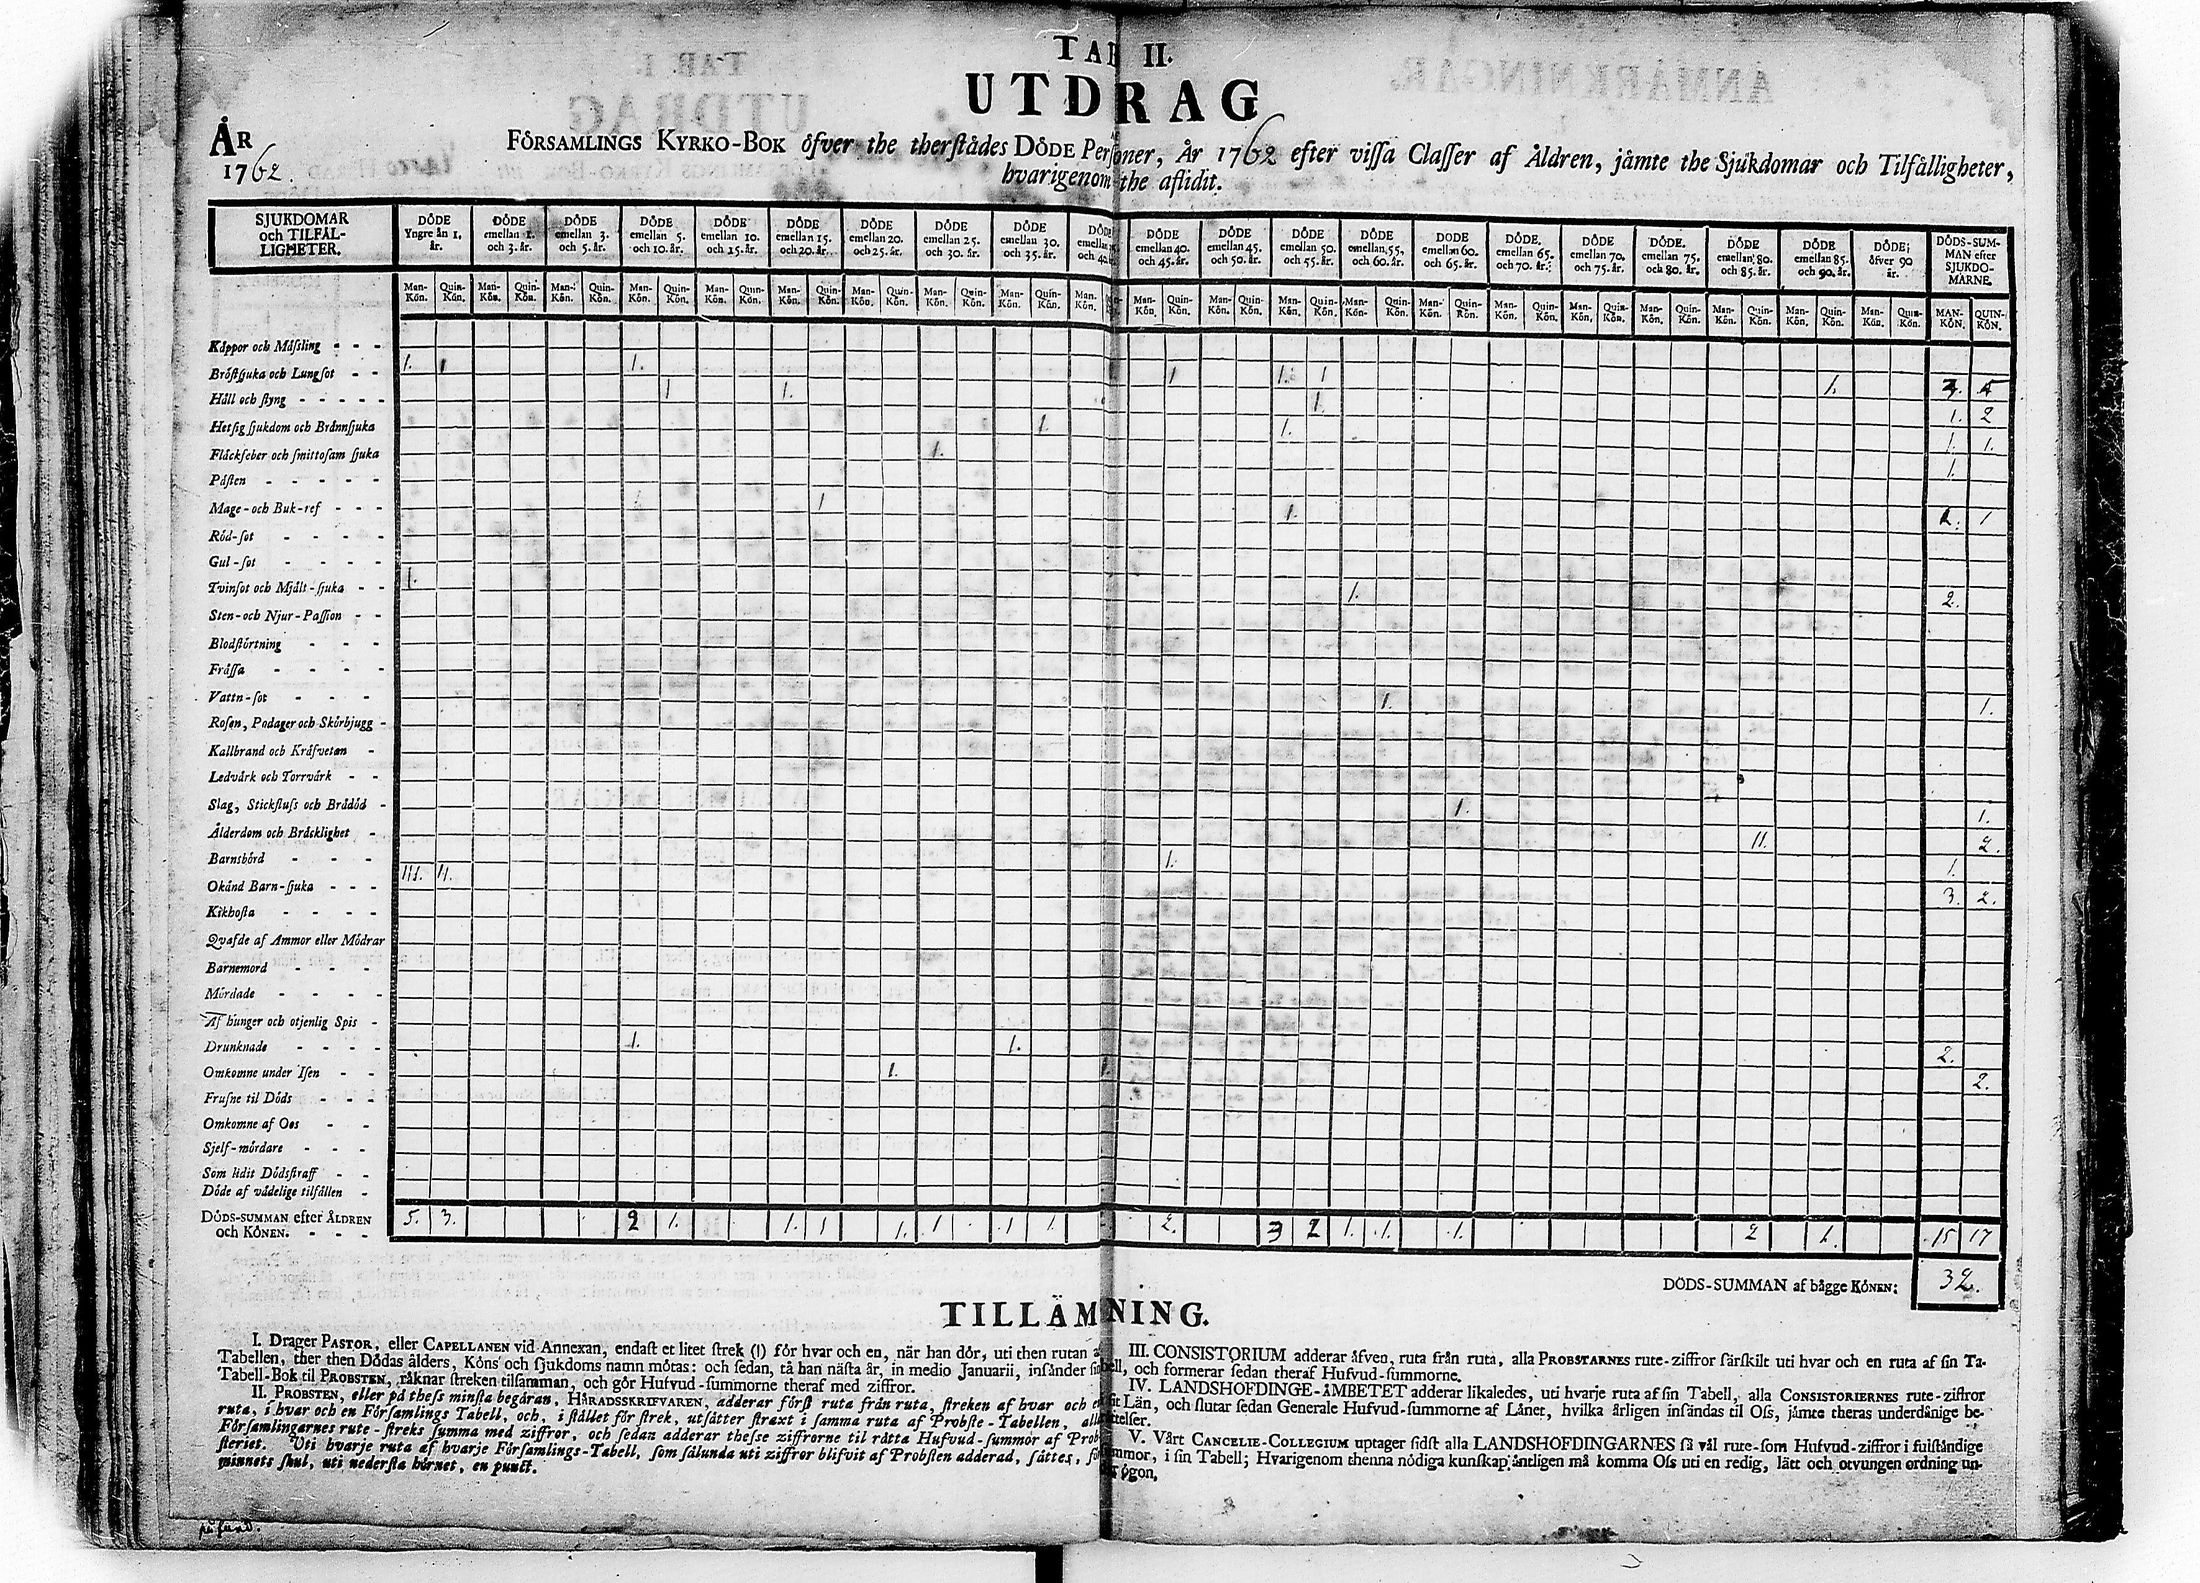 TAB II.
UTDRAG
ÅR
1762.
FÖRSAMLINGS KYRKO-BOK öfver the therstådes DÖDE Personer, År 1762 efter vissa Classer af Åldren, jämte the Sjukdomar och Tilfälligheter,
hvarigenom the aflidit.
SJUKDOMAR och TILFÄL-LIGHETER.
DÖDE Yngre än 1. år.
DÖDE emellan 1. och 3. år.
DÖDE emellan 3. och 5. år.
DÖDE emellan 5. och 10. år.
DÖDE emellan 10. och 15. år.
DÖDE emellan 15. och 20. år.
DÖDE emellan 20. och 25. år.
DÖDE emellan 25. och 30. år.
DÖDE emellan 30. och 35. år.
DÖDE
DÖDE emellan 40. och 45. år.
DÖDE emellan 45. och 50. år.
DÖDE emellan 50. och 55. år.
DÖDE emellan 55. och 60. år.
DÖDE emellan 60. och 65. år.
DÖDE. emellan 65. och 70. år.
DÖDE emellan 70. och 75. år.
DÖDE. emellan 75. och 80. år.
DÖDE emellan 80. och 85. år.
DÖDE emellan 85. och 90. år.
DÖDE; öfver 90 år.
DÖDS-SUM-MAN efter SJUKDO-MARNE.
Man-Kön. Quin-Kön. Man-Kön. Quin-Kön. Man-Kön. Quin-Kön. Man-Kön. Quin-Kön. Man-Kön. Quin-Kön. Man-Kön. Quin-Kön. Man-Kön. Quin-Kön. Man-Kön. Quin-Kön. Man-Kön. Quin-Kön. Man-Kön. Man-Kön. Quin-Kön. Man-Kön. Quin-Kön. Man-Kön. Quin-Kön. Man-Kön. Quin-Kön. Man-Kön. Quin-Kön. Man-Kön. Quin-Kön. Man-Kön. Quin-Kön. Man-Kön. Quin-Kön. Man-Kön. Quin-Kön. Man-Kön. Quin-Kön. Man-Kön. Quin-Kön. MAN-KÖN. QUIN-KÖN.
Kåppor och Mäsling - - -
Bröstsjuka och Lungsot - - 1. 1 1. 1 1. 1 1.
Håll och styng - - - - - 1 1. 1. 1. 2
Hetsig sjukdom och Brännsjuka 1. 1. 1. 1.
Fläckfeber och smittosam sjuka 1. 1.
Pästen - - - - -
Mage- och Buk-ref - - - 1 1 1. 1
Röd-sot - - - -
Gul-sot - - - -
Tvinsot och Mjält-sjuka - - 1. 1. 2.
Sten- och Njur-Passion - -
Blodstörtning - - -
Frässa - - - -
Vattn-sot - - - - 1. 1.
Rosen, Podager och Skörbjugg -
Kallbrand och Kräfvetan -
Ledvärk och Torrvärk - -
Slag, Stickfluss och Brådöd - 1. 1.
Ålderdom och Bräcklighet - 11. 2.
Barnsbörd - - - 1. 1.
Okänd Barn-sjuka - - - 111. 11. 3. 2.
Kikhosta - - - -
Qvafde af Ammor eller Mödrar
Barnemord - - - -
Mördade - - - -
Af hunger och otjenlig Spis -
Drunknade - - - - 1. 1. 2.
Omkomne under Isen - - 1. 1. 2.
Frusne til Döds - - -
Omkomne af Oos - -
Sjelf-mördare - - -
Som lidit Dödsstraff - -
Döde af vådelige tilfällen -
DÖDS-SUMMAN efter ÅLDREN 5. 3. 2 1. 1. 1 1. 1 1 1. 2. 3 2 1. 1. 1. 2 1. 15 17
och KÖNEN. - - -
DÖDS-SUMMAN af bägge KÖNEN: 32.
TILLÄMNING.
I. Drager PASTOR, eller CAPELLANEN vid Annexan, endast et litet strek (|) för hvar och en, när han dör, uti then rutan a
Tabellen, ther then Dödas ålders, Köns och sjukdoms namn mötas: och sedan, tå han nästa år, in medio Januarii, insänder sin
Tabell-Bok til PROBSTEN, räknar streken tilsamman, och gör Hufvud-summorne theraf med ziffror.
II. PROBSTEN, eller på thess minsta begäran, HÄRADSSKRIFVAREN, adderar först ruta från ruta, streken af hvar och en
ruta, i hvar och en Församlings Tabell, och, i stället för strek, utsätter straxt i samma ruta af Probste-Tabellen, alla
Församlingarnes rute-streks summa med ziffror, och sedan adderar thesse ziffrorne til rätta Hufvud-summor af Prob
steriet. Uti hvarje ruta af hvarje Församlings-Tabell, som sålunda uti ziffror blifvit af Probsten adderad, sättes, för
minnets skul, uti nedersta hörnet, en punct.
III. CONSISTORIUM adderar äfven, ruta från ruta, alla PROBSTARNES rute-ziffror särskilt uti hvar och en ruta af sin Ta-
bell, och formerar sedan theraf Hufvud-summorne.
IV. LANDSHÖFDINGE-ÄMBETET adderar likaledes, uti hvarje ruta af sin Tabell, alla CONSISTORIERNES rute-ziffror
Län, och slutar sedan Generale Hufvud-summorne af Länet, hvilka årligen insändas til Oss, jämte theras underdånige be-
rättelser.
V. Vårt CANCELIE-COLLEGIUM uptager sidst alla LANDSHÖFDINGARNES så väl rute-som Hufvud-ziffror i fulständige
summor, i sin Tabell; Hvarigenom thenna nödiga kunskap äntligen må komma Oss uti en redig, lätt och otvungen ordning un-
ögon.